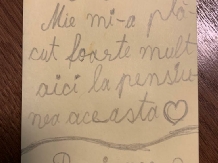 Mie mi-a plă-
cut foarte mult
aici la pensiu-
nea aceasta